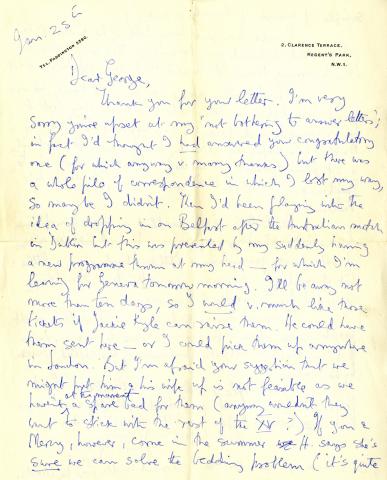 Jan. 25th
TEL. PADDINGTON 2290.
2, CLARENCE TERRACE,
REGENT'S PARK,
N.W.1.
Dear George,
Thank you for your letter. I'm very
sorry you're upset at my 'not bothering to answer letters';
in fact I'd thought I had answered your congratulatory
one (for which anyway v. many thanks) but there was
a whole pile of correspondence in which I lost my way,
so maybe I didn't. Then I'd been playing with the
idea of dropping in on Belfast after the Australian match
in Dublin but this was prevented by my suddenly having
a new programme thrown at my head — for which I'm
leaving for Geneva tomorrow morning. I'll be away not
more than ten days, so I would v. much like those
tickets if Jackie Kyle can raise them. He could have
them sent here — or I could pick them up anywhere
in London. But I'm afraid your suggestion that we
might put him & his wife up is not feasible as we
at the moment
a spare bed for them (anyway wouldn't they
want to stick with the rest of the XV?) If you &
Mercy, however, come in the summer H. says she's
sure we can solve the bedding problem (it's quite